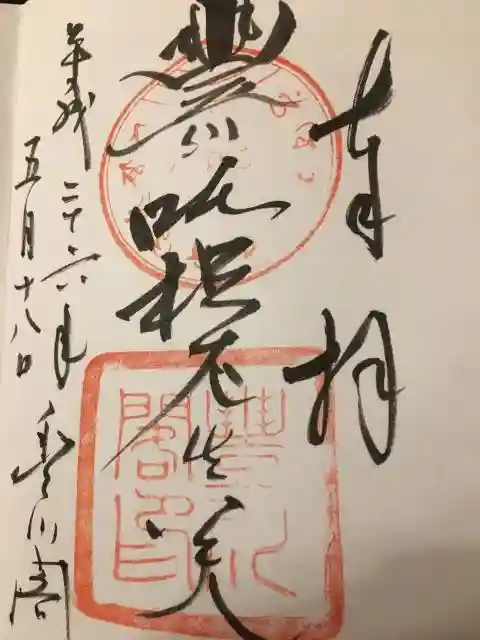 奉拝
豐川吒枳尼眞天
平成二十六年
五月十八日 豊川閣
豐川閣印